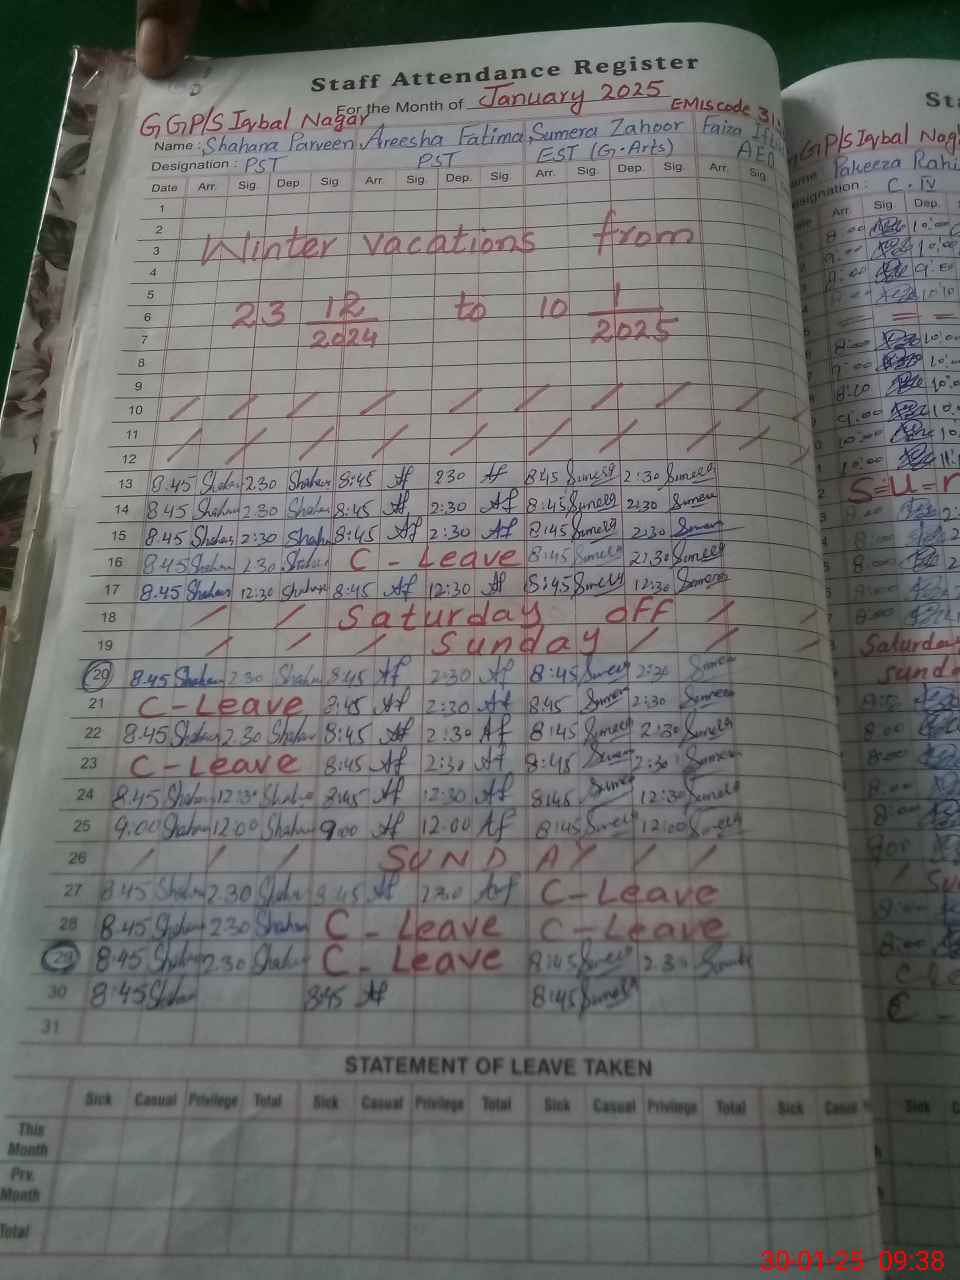 Staff Attendance Register
For the Month of January 2025
GGP/S Iqbal Nagar EMIS code 31
Name: Shahana Parveen Areesha Fatima Sumera Zahoor Faiza
Designation: PST PST EST (G.Arts) AEO
Date Arr. Sig. Dep. Sig Arr. Sig. Dep. Sig Arr. Sig. Dep. Sig. Arr. Sig.
1
2
3 Winter vacations from
4
5
6 23 12/2024 to 10 1/2025
7
8
9
10
11
12
13 8.45 Shahan 2.30 Shahan 8:45 Af 2:30 Af 8:45 Sumera 2:30 Sumera
14 8.45 Shahan 2.30 Shahan 8:45 Af 2:30 Af 8:45 Sumera 2:30 Sumera
15 8.45 Shahan 2:30 Shahan 8:45 Af 2:30 Af 8:45 Sumera 2:30 Sumera
16 8.45 Shahan 2.30 Shahan C - Leave 8:45 Sumera 2:30 Sumera
17 8.45 Shahan 12:30 Shahan 8:45 Af 12:30 Af 8:45 Sumera 12:30 Sumera
18 / / Saturday off / /
19 / / / Sunday / /
20 8.45 Shahan 2.30 Shahan 8:45 Af 2:30 Af 8:45 Sumera 2:30 Sumera
21 C-Leave 8:45 Af 2:30 Af 8:45 Sumera 2:30 Sumera
22 8.45 Shahan 2.30 Shahan 8:45 Af 2:30 Af 8:45 Sumera 2:30 Sumera
23 C-Leave 8:45 Af 2:30 Af 8:45 Sumera 2:30 Sumera
24 8:45 Shahan 12:30 Shahan 8:45 Af 12:30 Af 8:45 Sumera 12:30 Sumera
25 9:00 Shahan 12:00 Shahan 9:00 Af 12:00 Af 8:45 Sumera 12:00 Sumera
26 / / / SUNDAY / /
27 8.45 Shahan 2.30 Shahan 8:45 Af 2:30 Af C-Leave
28 8.45 Shahan 2.30 Shahan C - Leave C - Leave
29 8:45 Shahan 2.30 Shahan C - Leave 8:45 Sumera 2:30 Sumera
30 8:45 Shahan 8:45 Af 8:45 Sumera
31
STATEMENT OF LEAVE TAKEN
Sick Casual Privilege Total Sick Casual Privilege Total Sick Casual Privilege Total Sick
This Month
Prv. Month
Total
GGP/S Iqbal
Pakeeza
Designation: C.IV
Arr. Sig. Dep.
Sunday
Saturday
30-01-25 09:38